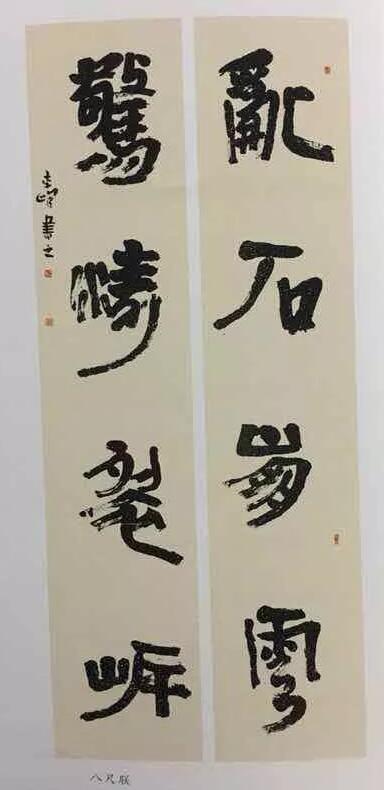 亂石崩雲
驚濤裂岸
書之
八尺联